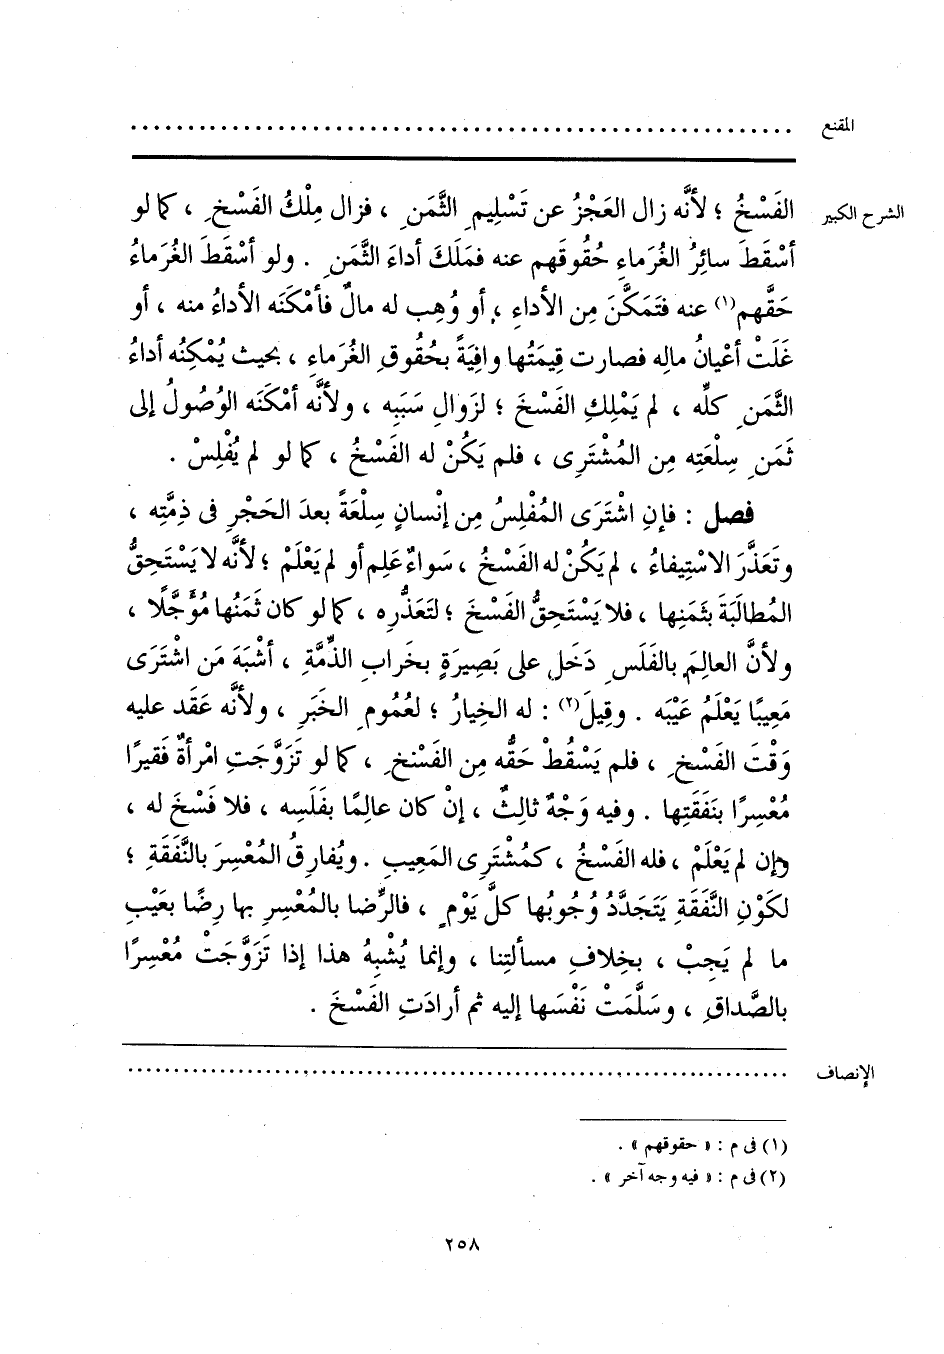 المقنع ........................................................
الشرح الكبير الفَسْخُ ؛ لأنَّه زال العَجْزُ عن تَسْلِيمِ الثَّمَنِ ، فزال مِلْكُ الفَسْخِ ، كما لو
أسْقَطَ سائِرُ الغُرَماءِ حُقُوقَهم عنه فمَلَكَ أداءَ الثَّمَنِ . ولو أسْقَطَ الغُرَماءُ
حَقَّهم(١) عنه فتَمَكَّنَ مِن الأداءِ ، أو وُهِب له مالٌ فأمْكَنَه الأداءُ منه ، أو
غَلَتْ أعْيانُ مالِه فصارت قِيمَتُها وافِيَةً بحُقُوقِ الغُرَماءِ ، بحيث يُمْكِنُه أداءُ
الثَّمَنِ كلِّه ، لم يَمْلِكِ الفَسْخَ ؛ لزَوالِ سَبَبِه ، ولأنَّه أمْكَنَه الوُصُولُ إلى
ثَمَنِ سِلْعَتِه مِن المُشْتَرِى ، فلم يَكُنْ له الفَسْخُ ، كما لو لم يُفْلِسْ .
فصل : فإنِ اشْتَرَى المُفْلِسُ مِن إنْسانٍ سِلْعَةً بعدَ الحَجْرِ فى ذِمَّتِه ،
وتَعَذَّرَ الاسْتِيفاءُ ، لم يَكُنْ له الفَسْخُ ، سَواءٌ عَلِم أو لم يَعْلَمْ ؛ لأنَّه لا يَسْتَحِقُّ
المُطالَبَةَ بثَمَنِها ، فلا يَسْتَحِقُّ الفَسْخَ ؛ لتَعَذُّرِه ، كما لو كان ثَمَنُها مُؤَجَّلًا ،
ولأنَّ العالِمَ بالفَلَسِ دَخَل على بَصِيرَةٍ بخَرابِ الذِّمَّةِ ، أشْبَهَ مَن اشْتَرَى
مَعِيبًا يَعْلَمُ عَيْبَه . وقِيلَ(٢) : له الخِيارُ ؛ لعُمُومِ الخَبَرِ ، ولأنَّه عَقَد عليه
وَقْتَ الفَسْخِ ، فلم يَسْقُطْ حَقُّه مِن الفَسْخِ ، كما لو تَزَوَّجَتِ امْرأةٌ فَقيرًا
مُعْسِرًا بنَفَقَتِها . وفيه وَجْهٌ ثالِثٌ ، إنْ كان عالِمًا بفَلَسِه ، فلا فَسْخَ له ،
وإن لم يَعْلَمْ ، فله الفَسْخُ ، كمُشْتَرِى المَعِيبِ . ويُفارِقُ المُعْسِرَ بالنَّفَقَةِ ؛
لكَوْنِ النَّفَقَةِ يَتَجَدَّدُ وُجُوبُها كلَّ يَوْمٍ ، فالرِّضا بالمُعْسِرِ بها رِضًا بعَيْبِ
ما لم يَجِبْ ، بخِلافِ مسألتِنا ، وإنما يُشْبِهُ هذا إذا تَزَوَّجَتْ مُعْسِرًا
بالصَّداقِ ، وسَلَّمَتْ نَفْسَها إليه ثم أرادَتِ الفَسْخَ .
الإنصاف ........................................................
(١) فى م : « حقوقهم » .
(٢) فى م : « فيه وجه آخر » .
٢٥٨